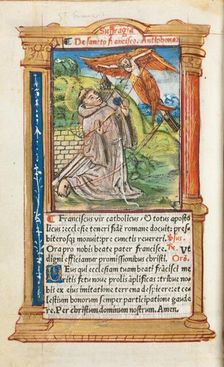 Suffragia
De sancto Francisco. Antiphona.
Franciscus vir catholicus / et totus aposto
licus: eccl'ie teneri fidẽ romane docuit: pres-
biterosq̃ monuit: pre cunctis revereri.
Ora pro nobis beate pater francisce.
digni efficiamur promissionibus christi.
qui ecclesiam tuam beati frãcisci me
ritis fetu noue prolis ãplificas: tribue no-
bis ex eius imitatione terrena despicere: et ce-
lestium donorum semper participatione gaude
re. Per christum dominum nostrum. Amen.